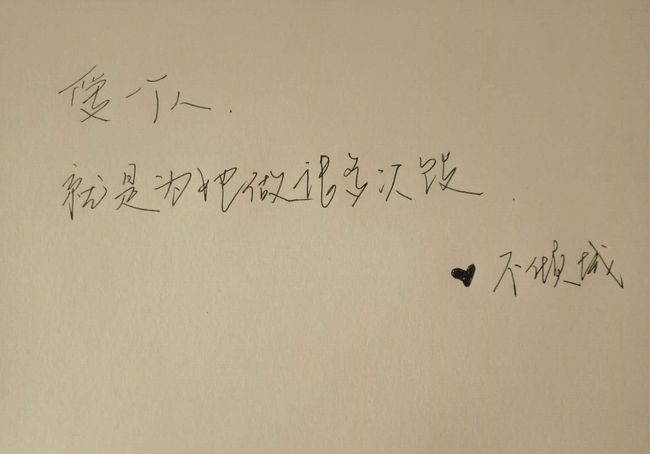 爱一个人.
就是为她做很多次饭.
♥ 不倾城